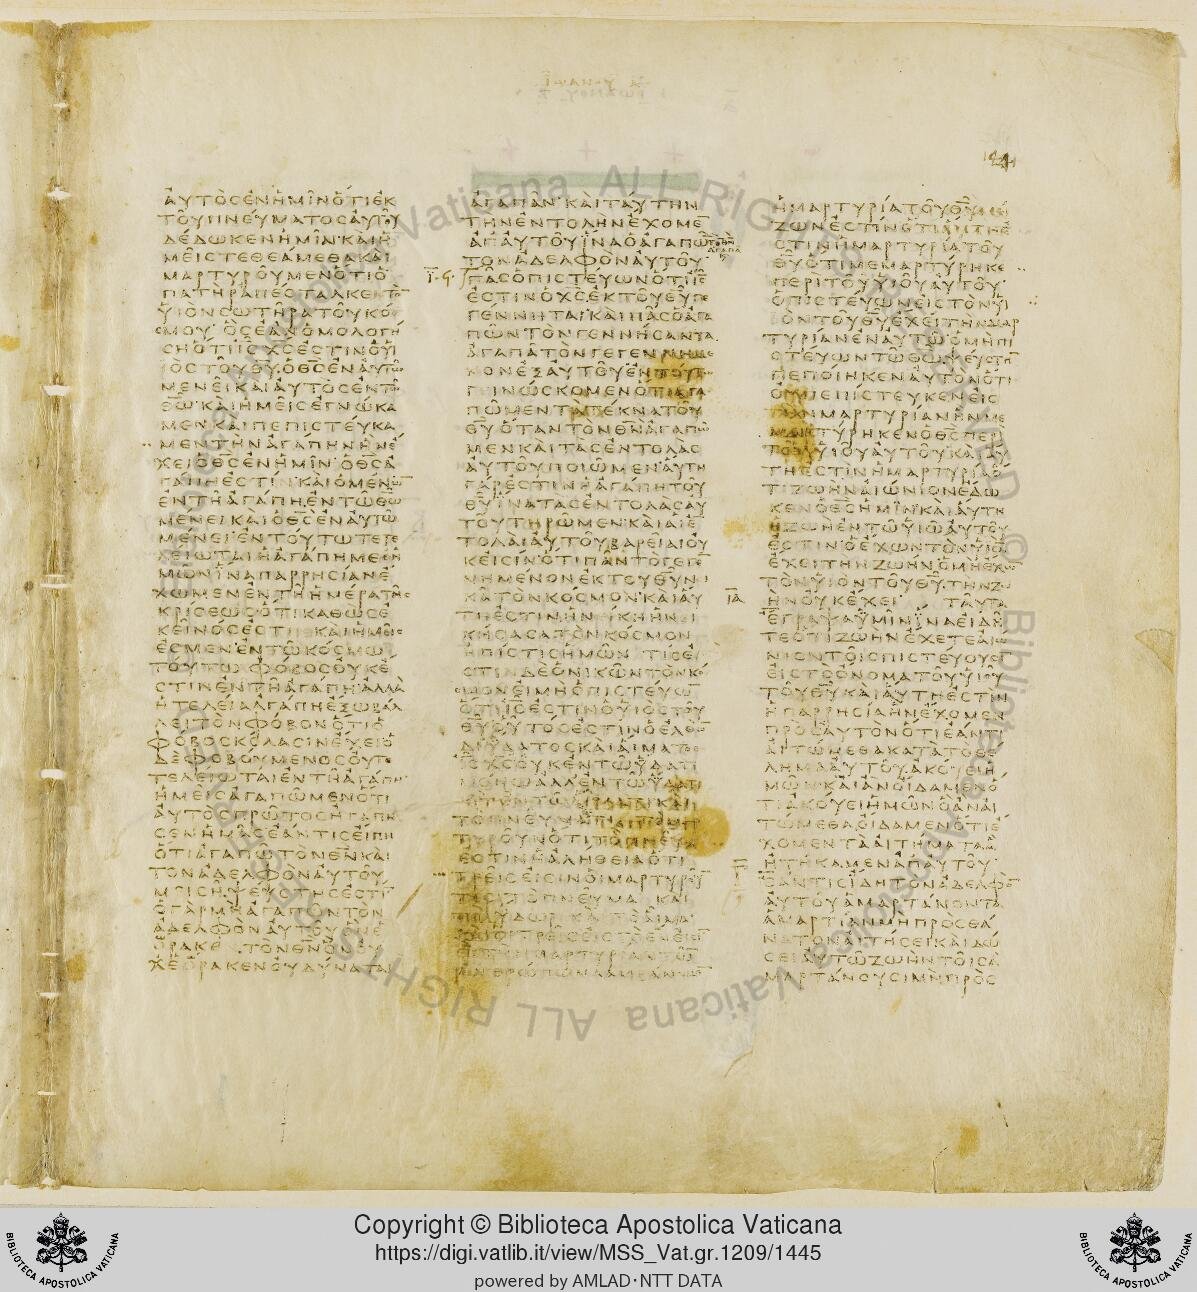 ΑΥΤΟΣ ΕΝ ΗΜΙΝ ΟΤΙ ΕΚ
ΤΟΥ ΠΝΕΥΜΑΤΟΣ ΑΥΤΟΥ
ΔΕΔΩΚΕΝ ΗΜΙΝ ΚΑΙ Η
ΜΕΙΣ ΤΕΘΕΑΜΕΘΑ ΚΑΙ
ΜΑΡΤΥΡΟΥΜΕΝ ΟΤΙ Ο
ΠΑΤΗΡ ΑΠΕΣΤΑΛΚΕΝ ΤΟ̅
ΥΙΟΝ ΣΩΤΗΡΑ ΤΟΥ ΚΟ
ΣΜΟΥ ΟΣ ΕΑΝ ΟΜΟΛΟΓΗ
ΣΗ ΟΤΙ Ι̅Σ̅ Χ̅Σ̅ ΕΣΤΙΝ Ο ΥΙ
ΟΣ ΤΟΥ Θ̅Υ̅ Ο Θ̅Σ̅ ΕΝ ΑΥΤΩ
ΜΕΝΕΙ ΚΑΙ ΑΥΤΟΣ ΕΝ ΤΩ
Θ̅Ω̅ ΚΑΙ ΗΜΕΙΣ ΕΓΝΩΚΑ
ΜΕΝ ΚΑΙ ΠΕΠΙΣΤΕΥΚΑ
ΜΕΝ ΤΗΝ ΑΓΑΠΗΝ ΗΝ Ε
ΧΕΙ Ο Θ̅Σ̅ ΕΝ ΗΜΙΝ Ο Θ̅Σ̅ Α
ΓΑΠΗ ΕΣΤΙΝ ΚΑΙ Ο ΜΕΝΩ̅
ΕΝ ΤΗ ΑΓΑΠΗ ΕΝ ΤΩ Θ̅Ω̅
ΜΕΝΕΙ ΚΑΙ Ο Θ̅Σ̅ ΕΝ ΑΥΤΩ
ΜΕΝΕΙ ΕΝ ΤΟΥΤΩ ΤΕΤΕ
ΛΕΙΩΤΑΙ Η ΑΓΑΠΗ ΜΕΘ Η
ΜΩΝ ΙΝΑ ΠΑΡΡΗΣΙΑΝ Ε
ΧΩΜΕΝ ΕΝ ΤΗ ΗΜΕΡΑ ΤΗΣ
ΚΡΙΣΕΩΣ ΟΤΙ ΚΑΘΩΣ Ε
ΚΕΙΝΟΣ ΕΣΤΙ ΚΑΙ ΗΜΕΙΣ
ΕΣΜΕΝ ΕΝ ΤΩ ΚΟΣΜΩ
ΤΟΥΤΩ ΦΟΒΟΣ ΟΥΚ Ε
ΣΤΙΝ ΕΝ ΤΗ ΑΓΑΠΗ ΑΛΛΑ
Η ΤΕΛΕΙΑ ΑΓΑΠΗ ΕΞΩ ΒΑΛ
ΛΕΙ ΤΟΝ ΦΟΒΟΝ ΟΤΙ Ο
ΦΟΒΟΣ ΚΟΛΑΣΙΝ ΕΧΕΙ Ο
ΔΕ ΦΟΒΟΥΜΕΝΟΣ ΟΥ ΤΕ
ΤΕΛΕΙΩΤΑΙ ΕΝ ΤΗ ΑΓΑΠΗ
ΗΜΕΙΣ ΑΓΑΠΩΜΕΝ ΟΤΙ
ΑΥΤΟΣ ΠΡΩΤΟΣ ΗΓΑΠΗ
ΣΕΝ ΗΜΑΣ ΕΑΝ ΤΙΣ ΕΙΠΗ
ΟΤΙ ΑΓΑΠΩ ΤΟΝ Θ̅Ν̅ ΚΑΙ
ΤΟΝ ΑΔΕΛΦΟΝ ΑΥΤΟΥ
ΜΙΣΗ ΨΕΥΣΤΗΣ ΕΣΤΙ̅
Ο ΓΑΡ ΜΗ ΑΓΑΠΩΝ ΤΟΝ
ΑΔΕΛΦΟΝ ΑΥΤΟΥ ΟΝ Ε
ΩΡΑΚΕ ΤΟΝ Θ̅Ν̅ ΟΝ ΟΥ
Χ ΕΟΡΑΚΕΝ ΟΥ ΔΥΝΑΤΑΙ
ΑΓΑΠΑΝ ΚΑΙ ΤΑΥΤΗΝ
ΤΗΝ ΕΝΤΟΛΗΝ ΕΧΟΜΕ̅
ΑΠ ΑΥΤΟΥ ΙΝΑ Ο ΑΓΑΠΩ
ΤΟΝ ΑΔΕΛΦΟΝ ΑΥΤΟΥ
ΠΑΣ Ο ΠΙΣΤΕΥΩΝ ΟΤΙ Ι̅Σ̅
ΕΣΤΙΝ Ο Χ̅Σ̅ ΕΚ ΤΟΥ Θ̅Υ̅ ΓΕ
ΓΕΝΝΗΤΑΙ ΚΑΙ ΠΑΣ Ο ΑΓΑ
ΠΩΝ ΤΟΝ ΓΕΝΝΗΣΑΝΤΑ
ΑΓΑΠΑ ΤΟΝ ΓΕΓΕΝΝΗΜΕ
ΝΟΝ ΕΞ ΑΥΤΟΥ ΕΝ ΤΟΥΤΩ
ΓΙΝΩΣΚΟΜΕΝ ΟΤΙ ΑΓΑ
ΠΩΜΕΝ ΤΑ ΤΕΚΝΑ ΤΟΥ
Θ̅Υ̅ ΟΤΑΝ ΤΟΝ Θ̅Ν̅ ΑΓΑΠΩ
ΜΕΝ ΚΑΙ ΤΑΣ ΕΝΤΟΛΑΣ
ΑΥΤΟΥ ΠΟΙΩΜΕΝ ΑΥΤΗ
ΓΑΡ ΕΣΤΙΝ Η ΑΓΑΠΗ ΤΟΥ
Θ̅Υ̅ ΙΝΑ ΤΑΣ ΕΝΤΟΛΑΣ ΑΥ
ΤΟΥ ΤΗΡΩΜΕΝ ΚΑΙ ΑΙ Ε̅
ΤΟΛΑΙ ΑΥΤΟΥ ΒΑΡΕΙΑΙ ΟΥ
Κ ΕΙΣΙΝ ΟΤΙ ΠΑΝ ΤΟ ΓΕΓΕ̅
ΝΗΜΕΝΟΝ ΕΚ ΤΟΥ Θ̅Υ̅ ΝΙ
ΚΑ ΤΟΝ ΚΟΣΜΟΝ ΚΑΙ ΑΥ
ΤΗ ΕΣΤΙΝ Η ΝΙΚΗ Η ΝΙ
ΚΗΣΑΣΑ ΤΟΝ ΚΟΣΜΟΝ
Η ΠΙΣΤΙΣ ΗΜΩΝ ΤΙΣ Ε
ΣΤΙΝ ΔΕ Ο ΝΙΚΩΝ ΤΟΝ ΚΟ
ΣΜΟΝ ΕΙ ΜΗ Ο ΠΙΣΤΕΥΩ̅
ΟΤΙ Ι̅Σ̅ ΕΣΤΙΝ Ο ΥΙΟΣ ΤΟΥ
Θ̅Υ̅ ΟΥΤΟΣ ΕΣΤΙΝ Ο ΕΛΘΩ̅
ΔΙ ΥΔΑΤΟΣ ΚΑΙ ΑΙΜΑΤΟΣ
Ι̅Σ̅ Χ̅Σ̅ ΟΥΚ ΕΝ ΤΩ ΥΔΑΤΙ
ΜΟΝΩ ΑΛΛ ΕΝ ΤΩ ΥΔΑΤΙ
ΚΑΙ ΕΝ ΤΩ ΑΙΜΑΤΙ ΚΑΙ
ΤΟ ΠΝΕΥΜΑ ΕΣΤΙΝ ΤΟ ΜΑΡ
ΤΥΡΟΥΝ ΟΤΙ ΤΟ ΠΝΕΥΜΑ
ΕΣΤΙΝ Η ΑΛΗΘΕΙΑ ΟΤΙ
ΤΡΕΙΣ ΕΙΣΙΝ ΟΙ ΜΑΡΤΥΡΟΥ̅
ΤΕΣ ΤΟ ΠΝΕΥΜΑ ΚΑΙ
ΤΟ ΥΔΩΡ ΚΑΙ ΤΟ ΑΙΜΑ
ΚΑΙ ΟΙ ΤΡΕΙΣ ΕΙΣ ΤΟ ΕΝ ΕΙΣΙ̅
ΕΙ ΤΗΝ ΜΑΡΤΥΡΙΑΝ ΤΩ̅
ΑΝΘΡΩΠΩΝ ΛΑΜΒΑΝΟΜΕ̅
Η ΜΑΡΤΥΡΙΑ ΤΟΥ Θ̅Υ̅ ΜΕΙ
ΖΩΝ ΕΣΤΙΝ ΟΤΙ ΑΥΤΗ Ε
ΣΤΙΝ Η ΜΑΡΤΥΡΙΑ ΤΟΥ
Θ̅Υ̅ ΟΤΙ ΜΕΜΑΡΤΥΡΗΚΕ
ΠΕΡΙ ΤΟΥ ΥΙΟΥ ΑΥΤΟΥ
Ο ΠΙΣΤΕΥΩΝ ΕΙΣ ΤΟΝ ΥΙ
ΟΝ ΤΟΥ Θ̅Υ̅ ΕΧΕΙ ΤΗΝ ΜΑΡ
ΤΥΡΙΑΝ ΕΝ ΑΥΤΩ Ο ΜΗ ΠΙ
ΣΤΕΥΩΝ ΤΩ Θ̅Ω̅ ΨΕΥΣΤΗ̅
ΠΕΠΟΙΗΚΕΝ ΑΥΤΟΝ ΟΤΙ
ΟΥ ΠΕΠΙΣΤΕΥΚΕΝ ΕΙΣ
ΤΗΝ ΜΑΡΤΥΡΙΑΝ ΗΝ ΜΕ
ΜΑΡΤΥΡΗΚΕΝ Ο Θ̅Σ̅ ΠΕΡΙ
ΤΟΥ ΥΙΟΥ ΑΥΤΟΥ ΚΑΙ ΑΥ
ΤΗ ΕΣΤΙΝ Η ΜΑΡΤΥΡΙΑ Ο
ΤΙ ΖΩΗΝ ΑΙΩΝΙΟΝ ΕΔΩ
ΚΕΝ Ο Θ̅Σ̅ ΗΜΙΝ ΚΑΙ ΑΥΤΗ
Η ΖΩΗ ΕΝ ΤΩ ΥΙΩ ΑΥΤΟΥ
ΕΣΤΙΝ Ο ΕΧΩΝ ΤΟΝ ΥΙΟ̅
ΕΧΕΙ ΤΗ ΖΩΗΝ Ο ΜΗ ΕΧΩ̅
ΤΟΝ ΥΙΟΝ ΤΟΥ Θ̅Υ̅ ΤΗΝ ΖΩ
ΗΝ ΟΥΚ ΕΧΕΙ ΤΑΥΤΑ
ΕΓΡΑΨΑ ΥΜΙΝ ΙΝΑ ΕΙΔΗ
ΤΕ ΟΤΙ ΖΩΗΝ ΕΧΕΤΕ ΑΙΩ
ΝΙΟΝ ΤΟΙΣ ΠΙΣΤΕΥΟΥΣΙ
ΕΙΣ ΤΟ ΟΝΟΜΑ ΤΟΥ ΥΙΟΥ
ΤΟΥ Θ̅Υ̅ ΚΑΙ ΑΥΤΗ ΕΣΤΙΝ
Η ΠΑΡΡΗΣΙΑ ΗΝ ΕΧΟΜΕΝ
ΠΡΟΣ ΑΥΤΟΝ ΟΤΙ ΕΑΝ ΤΙ
ΑΙΤΩΜΕΘΑ ΚΑΤΑ ΤΟ ΘΕ
ΛΗΜΑ ΑΥΤΟΥ ΑΚΟΥΕΙ Η
ΜΩΝ ΚΑΙ ΑΝ ΟΙΔΑΜΕΝ Ο
ΤΙ ΑΚΟΥΕΙ ΗΜΩΝ Ο ΑΝ ΑΙ
ΤΩΜΕΘΑ ΟΙΔΑΜΕΝ ΟΤΙ Ε
ΧΟΜΕΝ ΤΑ ΑΙΤΗΜΑΤΑ Α
ΗΤΗΚΑΜΕΝ ΑΠ ΑΥΤΟΥ
ΕΑΝ ΤΙΣ ΙΔΗ ΤΟΝ ΑΔΕΛΦΟ̅
ΑΥΤΟΥ ΑΜΑΡΤΑΝΟΝΤΑ
ΑΜΑΡΤΙΑΝ ΜΗ ΠΡΟΣ ΘΑ
ΝΑΤΟΝ ΑΙΤΗΣΕΙ ΚΑΙ ΔΩ
ΣΕΙ ΑΥΤΩ ΖΩΗΝ ΤΟΙΣ Α
ΜΑΡΤΑΝΟΥΣΙ ΜΗ ΠΡΟΣ
Copyright © Biblioteca Apostolica Vaticana
https://digi.vatlib.it/view/MSS_Vat.gr.1209/1445
powered by AMLAD·NTT DATA
BIBLIOTECA APOSTOLICA VATICANA
BIBLIOTECA APOSTOLICA VATICANA